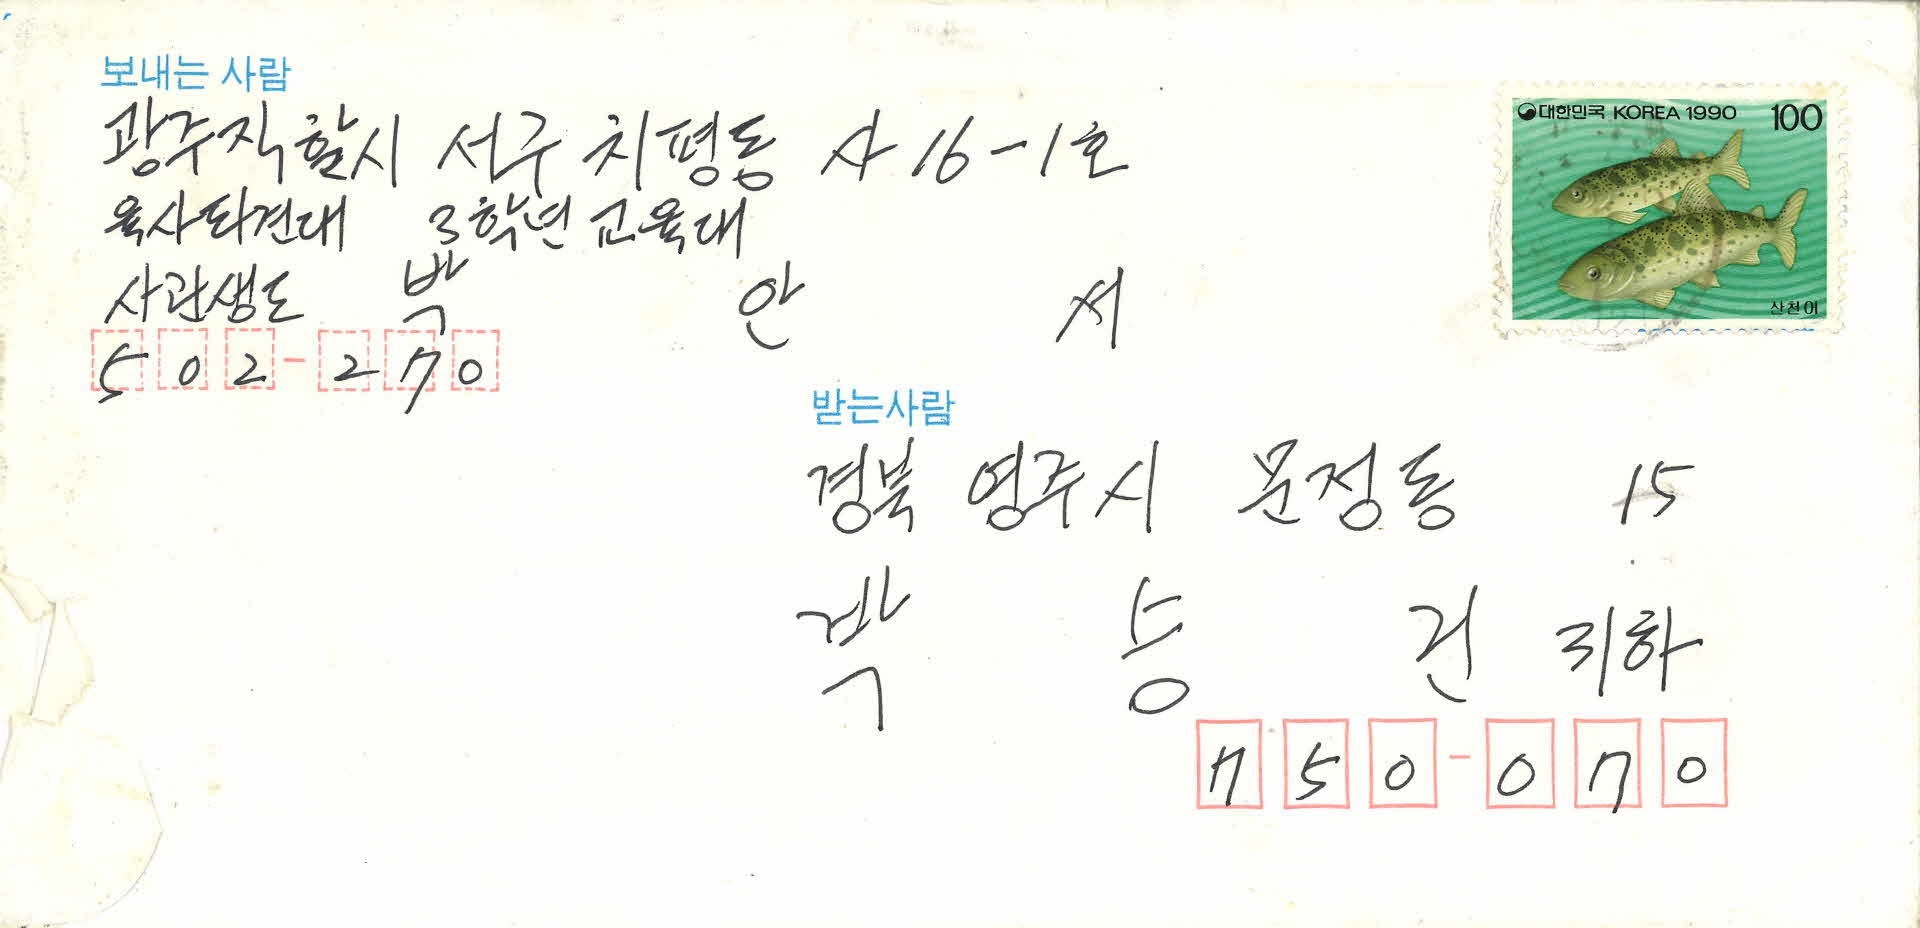 보내는 사람
광주직할시 서구 치평동 사 16-1호
육사파견대 3학년 교육대
사관생도 박 안 서
502-270
대한민국 KOREA 1990 100
산천어
받는사람
경북 영주시 문정동 15
박 승 건 귀하
750-070